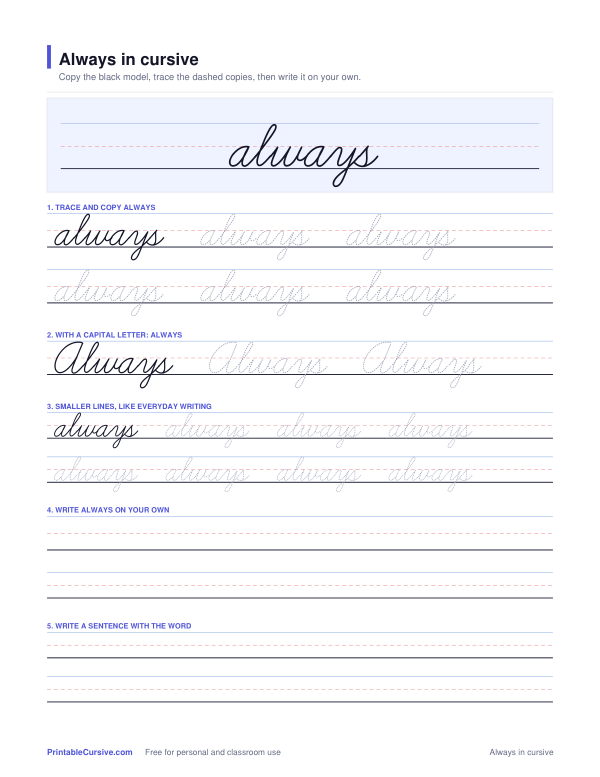 Always in cursive
Copy the black model, trace the dashed copies, then write it on your own.
always
1. TRACE AND COPY ALWAYS
always always always
always always always
2. WITH A CAPITAL LETTER: ALWAYS
Always Always Always
3. SMALLER LINES, LIKE EVERYDAY WRITING
always always always always
always always always always
4. WRITE ALWAYS ON YOUR OWN
5. WRITE A SENTENCE WITH THE WORD
PrintableCursive.com Free for personal and classroom use Always in cursive